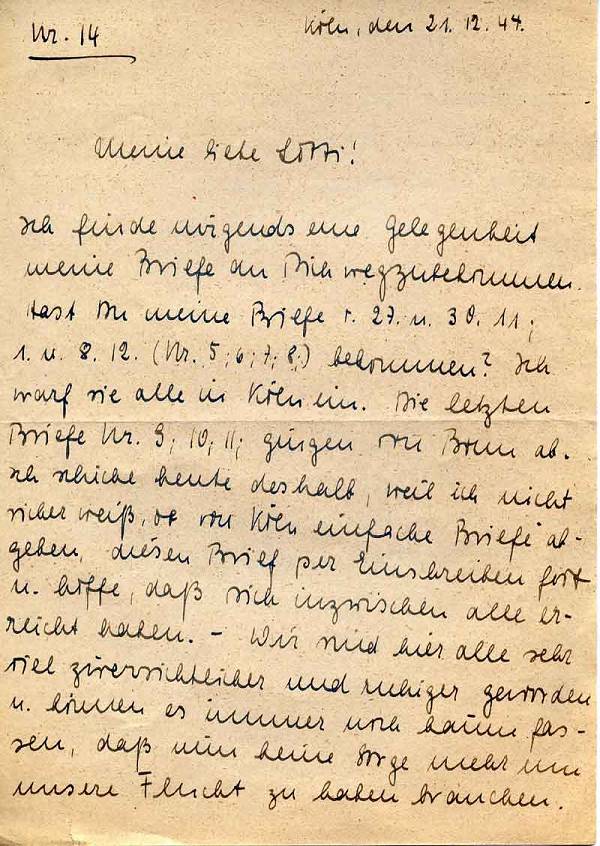 Nr. 14
Köln, den 21. 12. 44.
Meine liebe Lotti!
Ich finde nirgends eine Gelegenheit
meine Briefe an Dich wegzubekommen.
Hast Du meine Briefe v. 27. u. 30. 11;
1. u. 8. 12. (Nr. 5; 6; 7; 8;) bekommen? Ich
warf sie alle in Köln ein. Die letzten
Briefe Nr. 9; 10; 11; gingen von Bonn ab.
Ich schicke heute deshalb, weil ich nicht
sicher weiß, ob von Köln einfache Briefe ab-
gehen, diesen Brief per Einschreiben fort
u. hoffe, daß Dich inzwischen alle er-
reicht haben. – Wir sind hier alle sehr
viel zuversichtlicher und ruhiger geworden
u. können es immer noch kaum fas-
sen, daß wir keine Sorge mehr um
unsere Flucht zu haben brauchen.